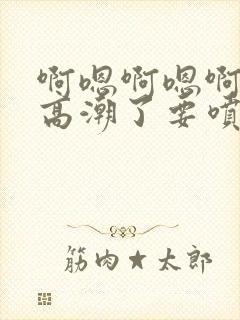 啊嗯啊嗯啊
高潮了要噴
筋肉★太郎